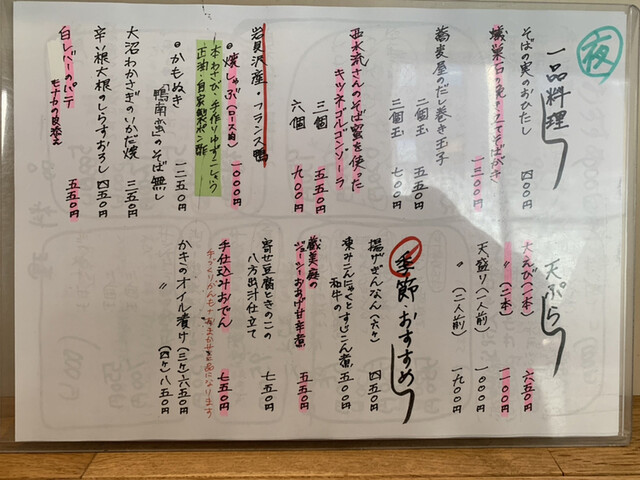 夜
一品料理
そばの実のおひたし 四〇〇円
蟻巣石の兜で立てそばがき 一三〇〇円
蕎麦屋のだし巻き玉子
二個玉 五五〇円
三個玉 七〇〇円
西水流さんのそば蜜を使った
キツネゴルゴンゾーラ
三個 五五〇円
六個 九〇〇円
岩見沢産・フランス鴨
焼しゃぶ(ロース肉) 一〇〇〇円
本わさび・手作りゆずこしょう
正油・自家製ポン酢
かもぬき 一二五〇円
鴨南蛮のそば無し
大沼わかさぎのいかだ焼 三五〇円
辛い根大根のしらすおろし 四五〇円
白レバーのパテ 五五〇円
モナカの皮添え
天ぷら
大えび(一本) 六五〇円
〃(二本)
天盛り(一人前) 一〇〇〇円
〃(二人前) 一九〇〇円
季節おすすめ
揚げぎんなん(六ヶ) 四五〇円
凍みこんにゃくとすじこん煮 五〇〇円
和牛の
蔵美庭の
ジューシーおあげ甘辛煮 五五〇円
寄せ豆腐ときのこの
八方出汁仕立て 七五〇円
手仕込みおでん 七五〇円
かきのオイル漬け(三ヶ)六五〇円
〃(四ヶ)八五〇円